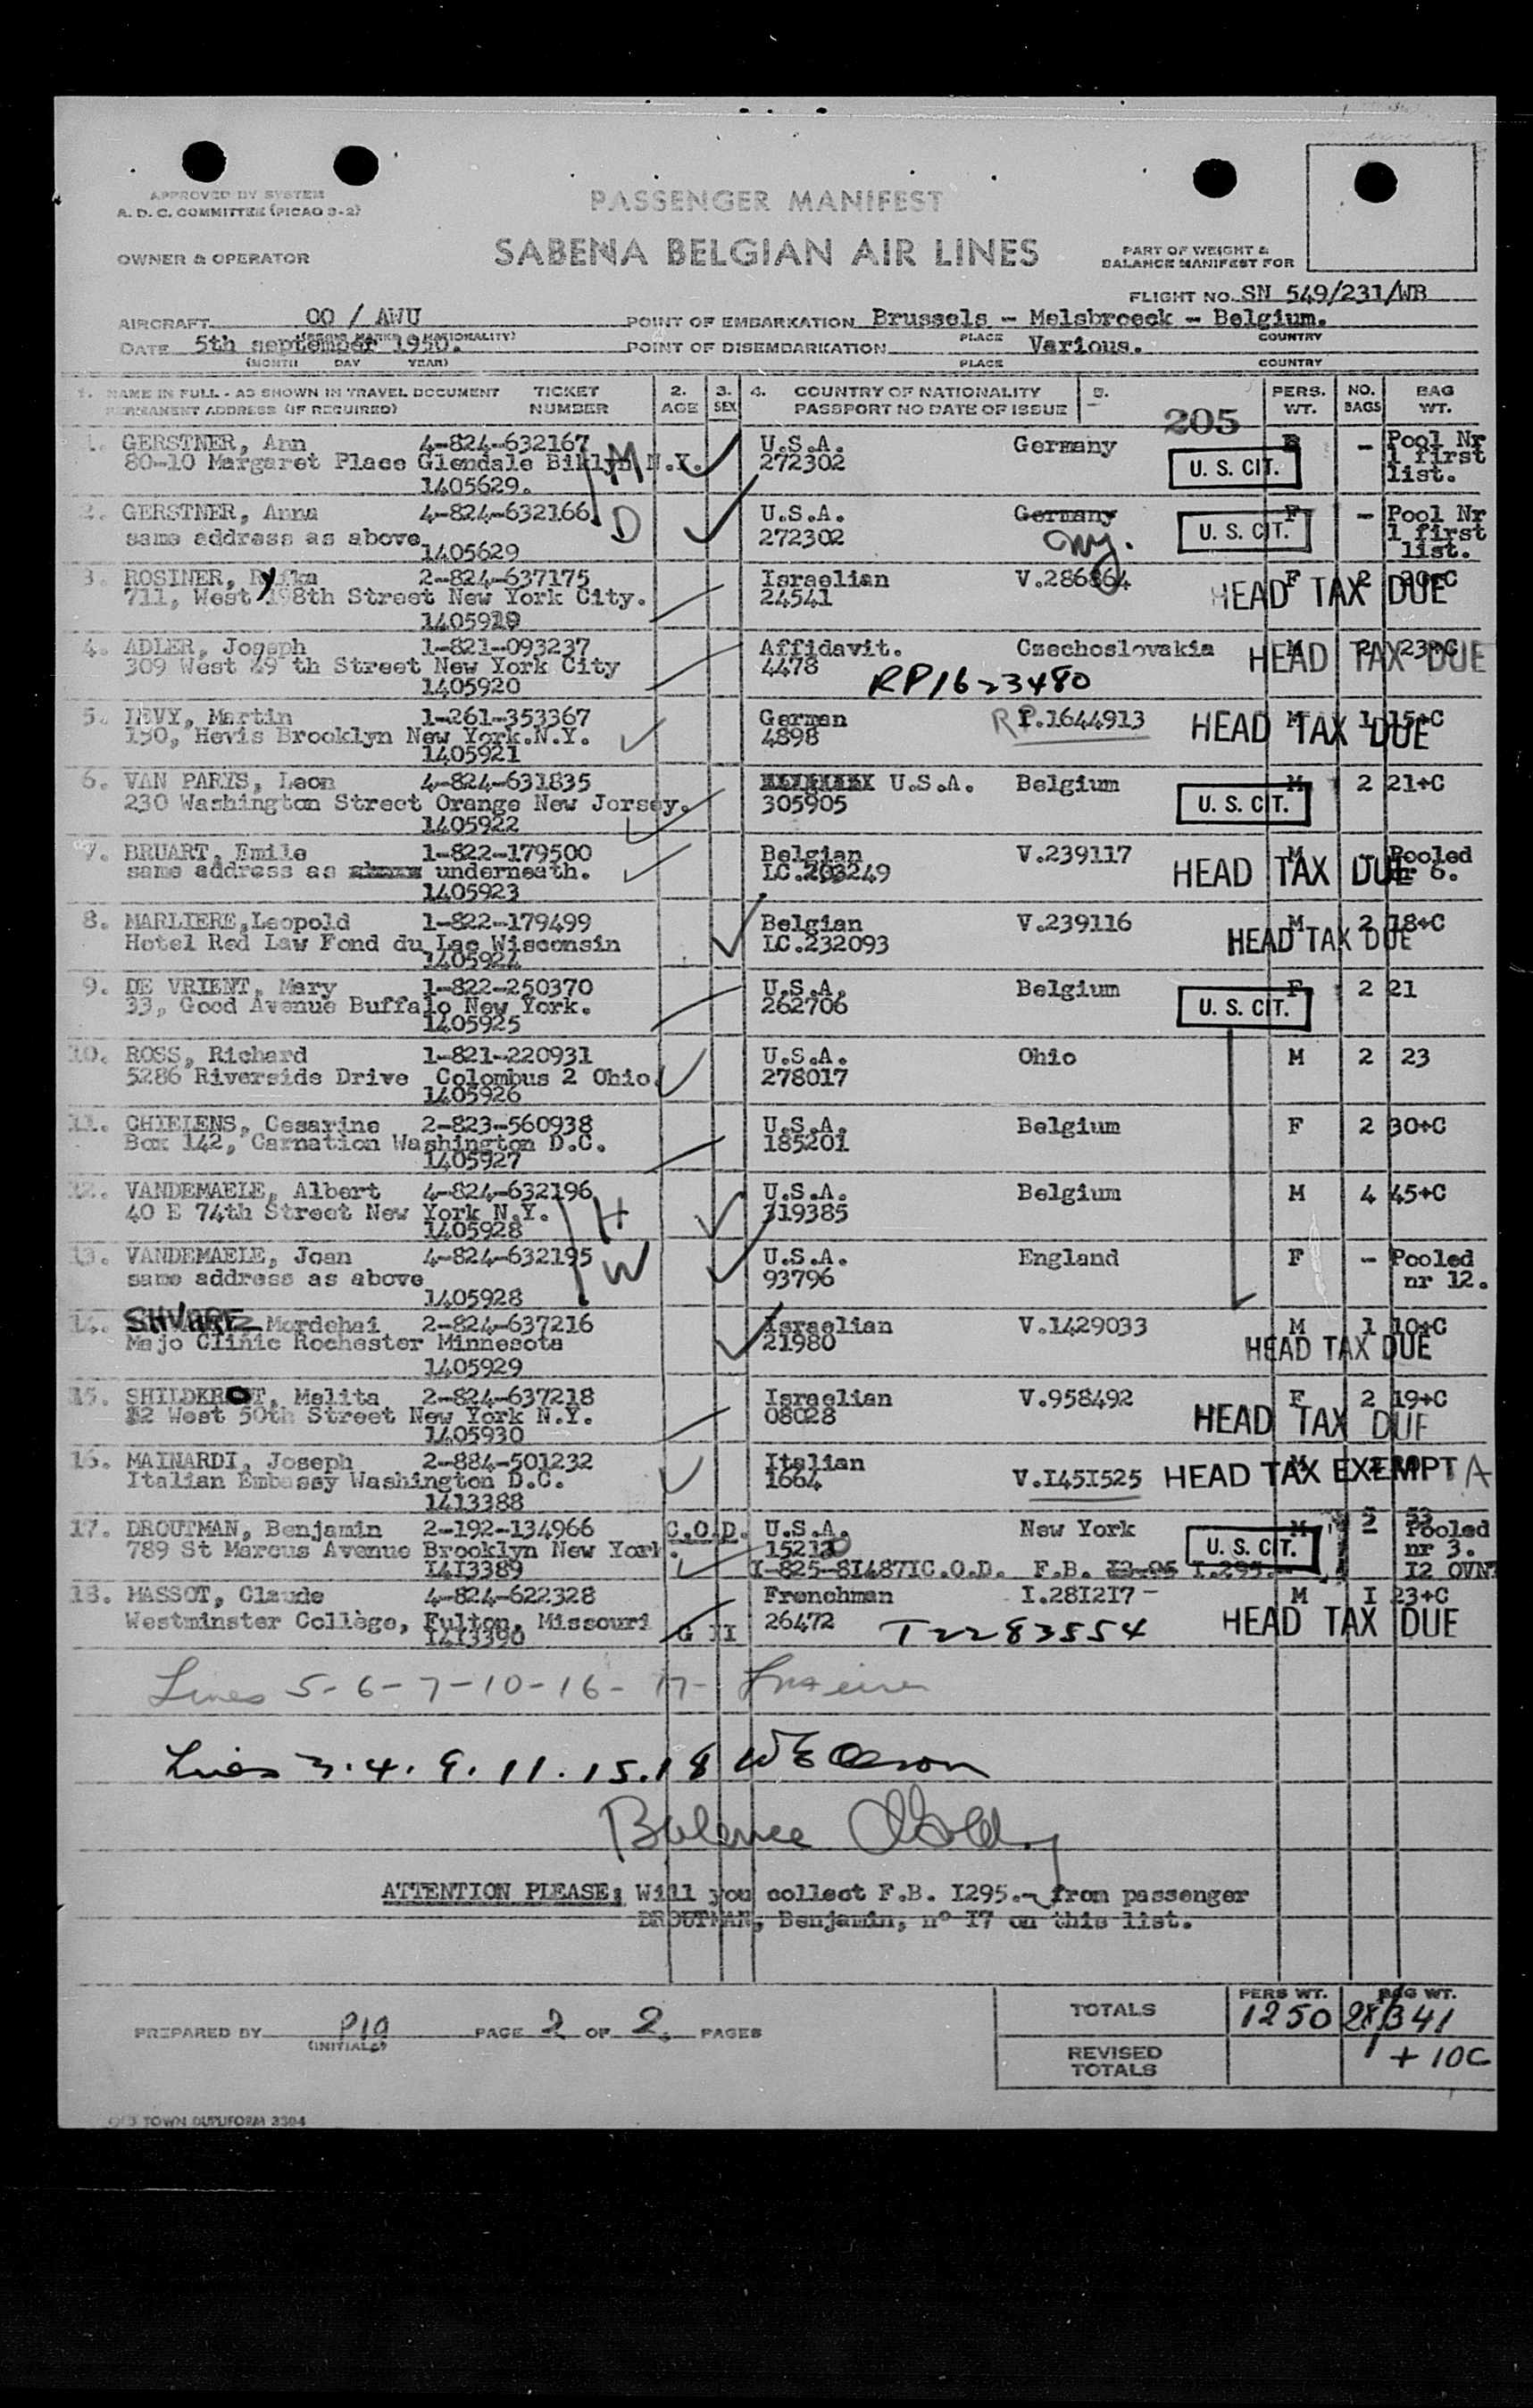 APPROVED BY SYSTEM
A. D. C. COMMITTEE (PICAO 3-2)
PASSENGER MANIFEST
OWNER & OPERATOR
SABENA BELGIAN AIR LINES
PART OF WEIGHT &
BALANCE MANIFEST FOR
FLIGHT NO. SN 549/231/WB
AIRCRAFT OO / AWU POINT OF EMBARKATION Brussels - Melsbroeck - Belgium.
PLACE COUNTRY
DATE 5th september 1950. POINT OF DISEMBARKATION Various.
(MONTH DAY YEAR) PLACE COUNTRY
1. NAME IN FULL - AS SHOWN IN TRAVEL DOCUMENT TICKET 2. 3. 4. COUNTRY OF NATIONALITY 5. PERS. NO. BAG
PERMANENT ADDRESS (IF REQUIRED) NUMBER AGE SEX PASSPORT NO DATE OF ISSUE 205 WT. BAGS WT.
1. GERSTNER, Ann 4-824-632167 M U.S.A. Germany - Pool Nr
80-10 Margaret Place Glendale Biklyn N.Y. 272302 U. S. CIT. 1 first
1405629. list.
2. GERSTNER, Anna 4-824-632166 D U.S.A. Germany F - Pool Nr
same address as above 272302 NY. U. S. CIT. 1 first
1405629 list.
3. ROSINER, 2-824-637175 Israelian V.286864 F 2 20+C
711, West 198th Street New York City. 24541 HEAD TAX DUE
1405919
4. ADLER, Joseph 1-821-093237 Affidavit. Czechoslovakia M 2 23+C
309 West 49 th Street New York City 4478 HEAD TAX DUE
1405920 RP1623480
5. LEVY, Martin 1-261-353367 German RP.1644913 M 1 15+C
190, Hevis Brooklyn New York.N.Y. 4898 HEAD TAX DUE
1405921
6. VAN PARYS, Leon 4-824-631835 U.S.A. Belgium M 2 21+C
230 Washington Street Orange New Jersey. 305905 U. S. CIT.
1405922
7. BRUART, Emile 1-822-179500 Belgian V.239117 M - Pooled
same address as above underneath. LC.203249 HEAD TAX DUE nr 6.
1405923
8. MARLIERE,Leopold 1-822-179499 Belgian V.239116 M 2 18+C
Hotel Red Law Fond du Lac Wisconsin LC.232093 HEAD TAX DUE
1405924
9. DE VRIENT, Mary 1-822-250370 U.S.A. Belgium F 2 21
33, Good Avenue Buffalo New York. 262706 U. S. CIT.
1405925
10. ROSS, Richard 1-821-220931 U.S.A. Ohio M 2 23
5286 Riverside Drive Colombus 2 Ohio. 278017
1405926
11. CHIELENS, Cesarine 2-823-560938 U.S.A. Belgium F 2 30+C
Box 142, Carnation Washington D.C. 185201
1405927
12. VANDEMAELE, Albert 4-824-632196 H U.S.A. Belgium M 4 45+C
40 E 74th Street New York N.Y. 319385
1405928
13. VANDEMAELE, Joan 4-824-632195 W U.S.A. England F - Pooled
same address as above 93796 nr 12.
1405928
14. SHVARTZ Mordehai 2-824-637216 Israelian V.1429033 M 1 10+C
Majo Clinic Rochester Minnesota 21980 HEAD TAX DUE
1405929
15. SHILDKROT, Melita 2-824-637218 Israelian V.958492 F 2 19+C
12 West 50th Street New York N.Y. 08028 HEAD TAX DUE
1405930
16. MAINARDI, Joseph 2-884-501232 Italian V.1451525 M
Italian Embassy Washington D.C. 1664 HEAD TAX EXEMPT A
1413388
17. DROUTMAN, Benjamin 2-192-134966 C.O.D. U.S.A. New York M 53
789 St Marcus Avenue Brooklyn New York. 152120 U. S. CIT. Pooled nr 3.
1413389 I-825-81487IC.O.D. F.B. I2.95 I.295.- I2 OVN
18. MASSOT, Claude 4-824-622328 Frenchman I.281217- M I 23+C
Westminster Collège, Fulton, Missouri G II 26472 T2283554 HEAD TAX DUE
1413390
Lines 5-6-7-10-16-17-
Lines 3.4.9.11.15.18 W E Olson
Balance
ATTENTION PLEASE: Will you collect F.B. I295.- from passenger
DROUTMAN, Benjamin, n° I7 on this list.
PREPARED BY PIG PAGE 2 OF 2 PAGES
(INITIALS)
TOTALS PERS WT. 1250 BAG WT. 28/341
REVISED
TOTALS + 10C
OLD TOWN DUPLIFORM 3384